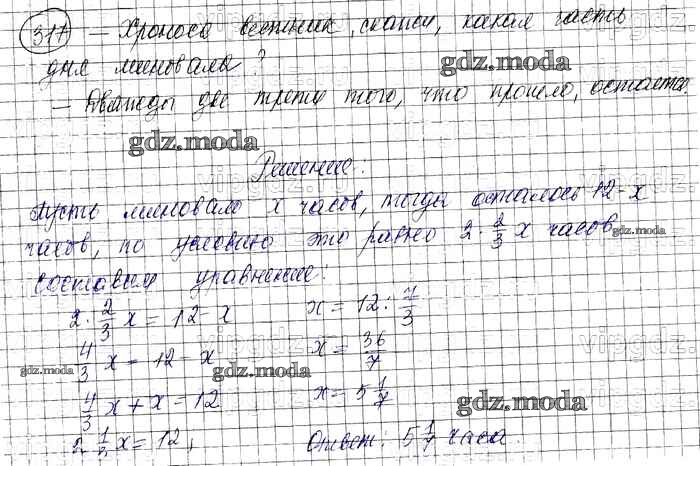 317 – Хроноса вестник, скажи, какая часть
дня миновала?
– Дважды две трети того, что прошло, остается.
gdz.moda
gdz.moda
vipgdz.ru
Решение:
Пусть миновало x часов, тогда осталось 12-x
часов, по условию это равно 2·2/3 x часов.
gdz.moda
Составим уравнение:
2·2/3 x = 12-x   x = 12 : 7/3
4/3 x = 12-x   x = 36/7
gdz.moda gdz.moda
4/3 x + x = 12   x = 5 1/7
gdz.moda
2 1/3 x = 12,   Ответ: 5 1/7 часа.